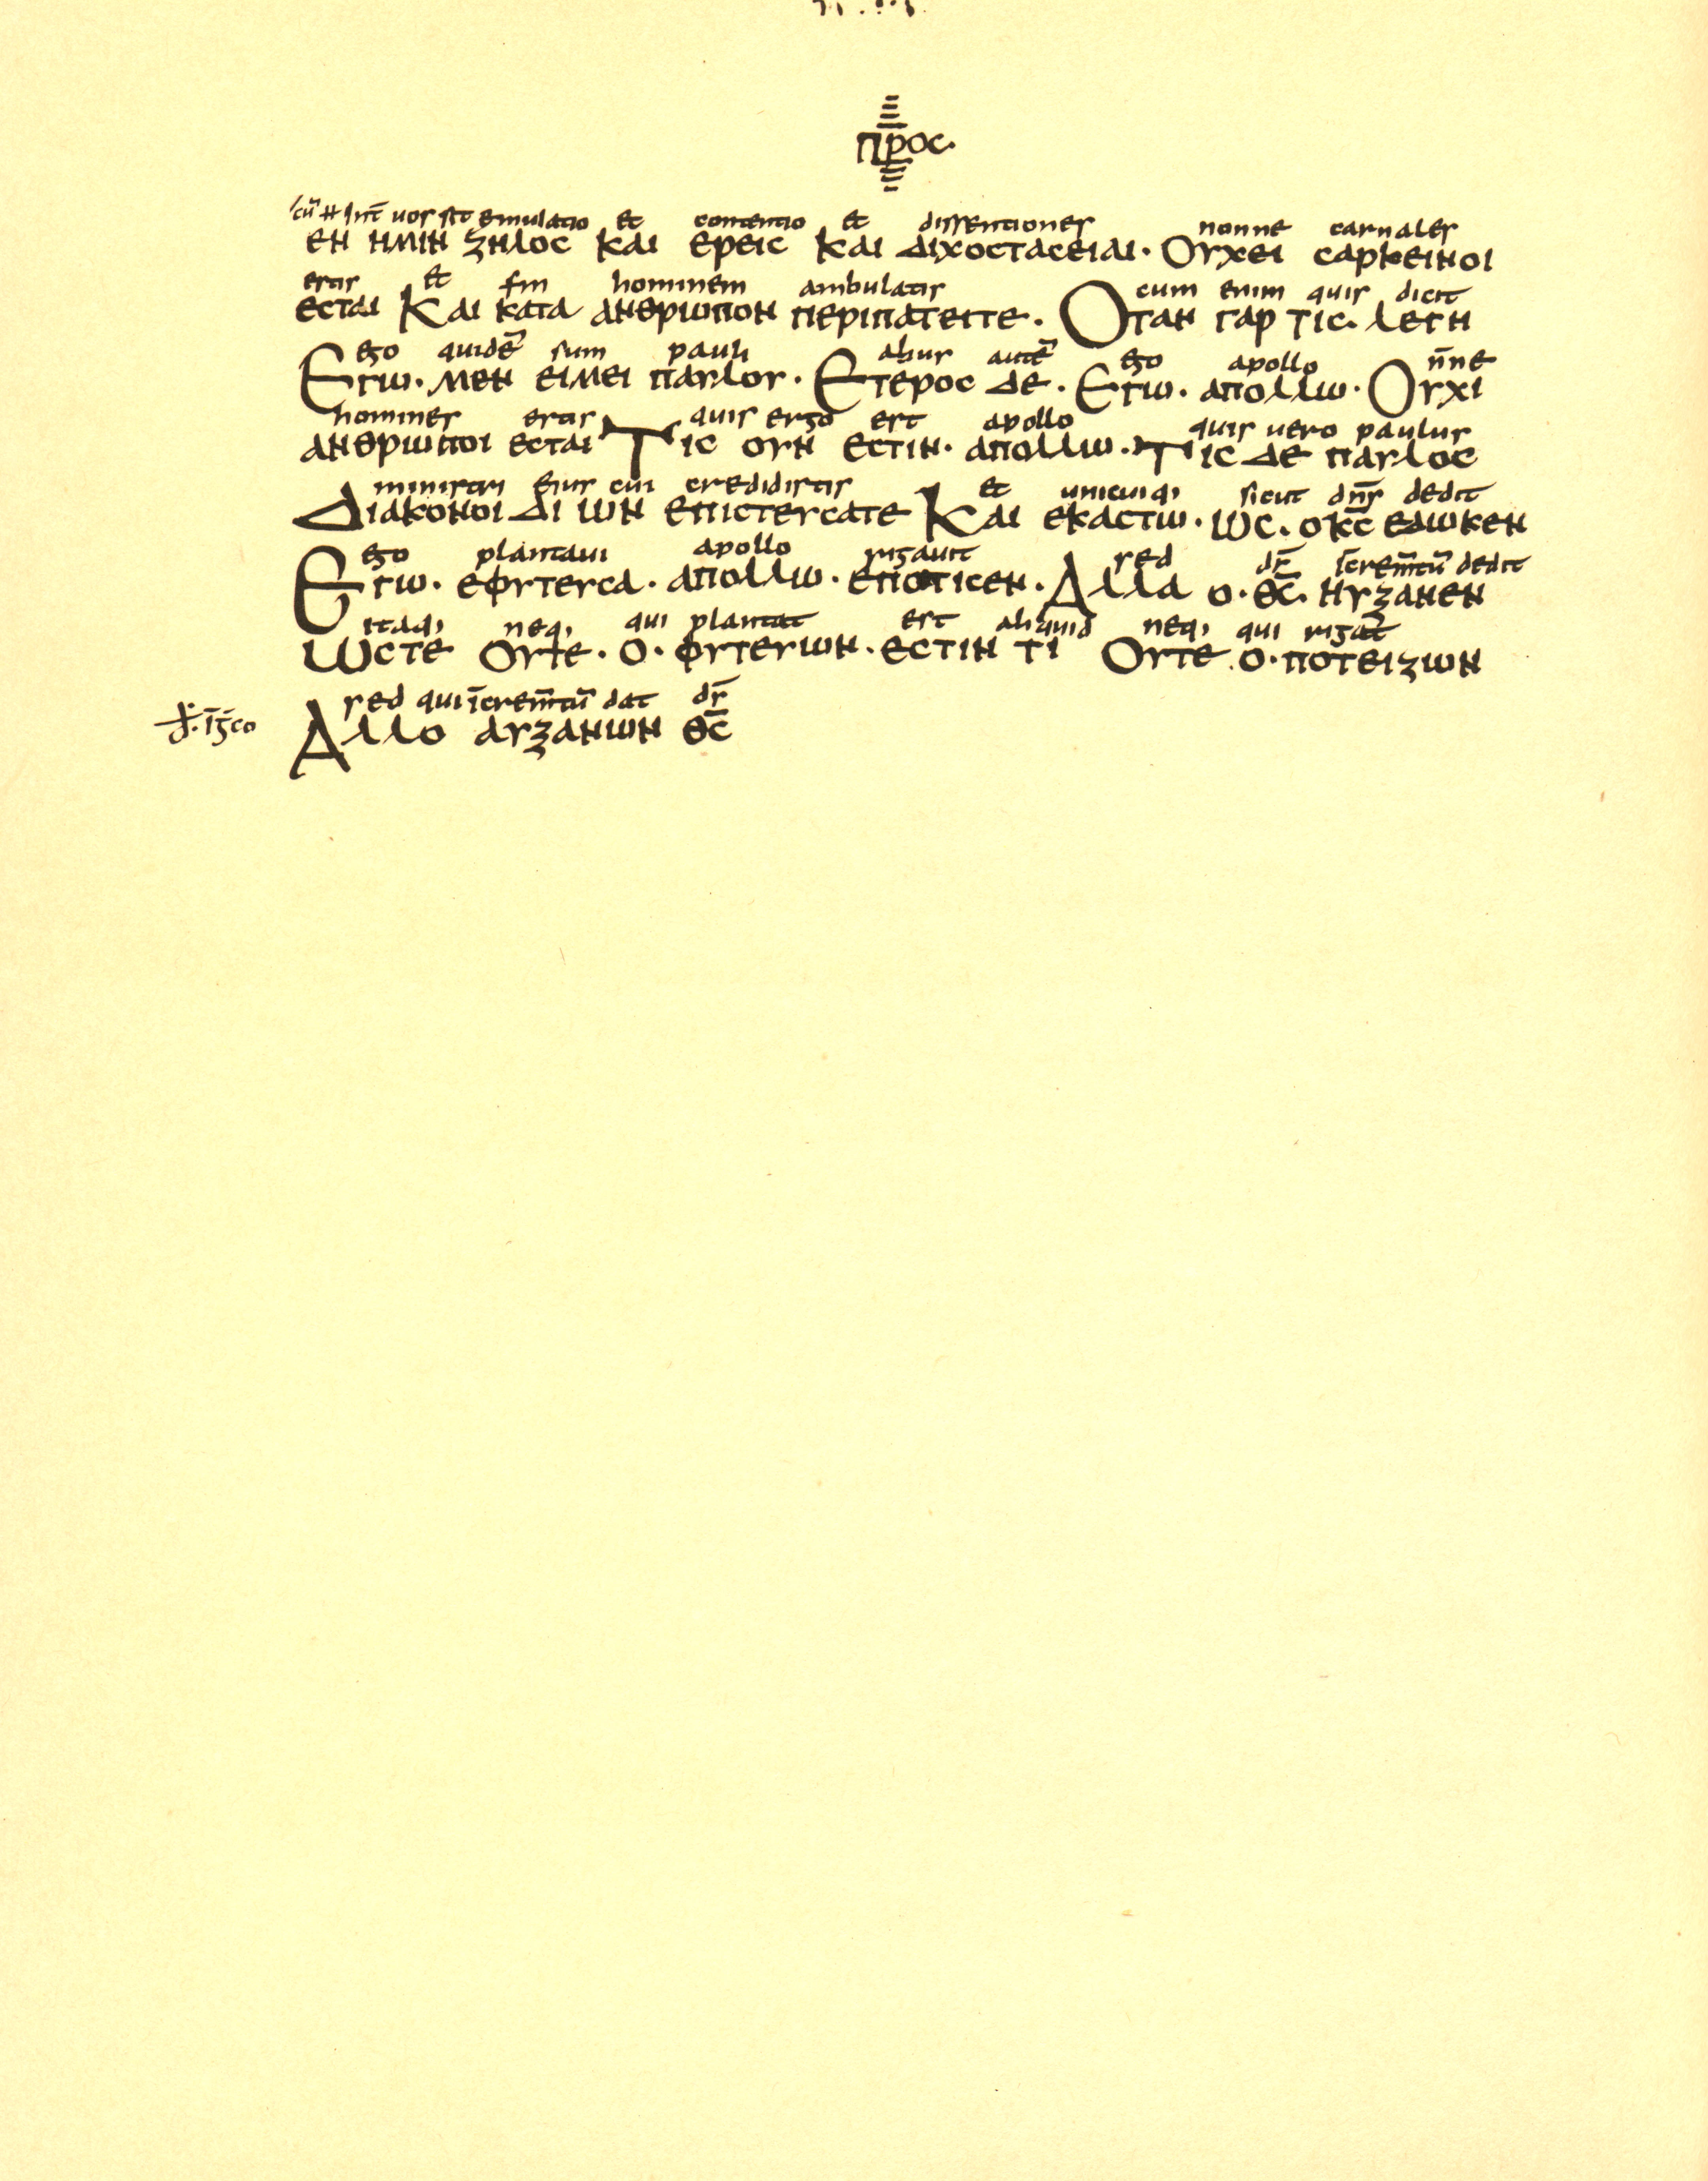 προc.
cū ⁒ int̄ uos sit emulatio et contentio et dissentiones nonne carnales
εν ημιν ζηλοc και ερειc και διχοcταcειαι· Ουχει cαρκεινοι
estis et hominem ambulatis cum enim quis dicit
εcται Και κατα ανθρωπον περιπατειτε· Οταν γαρ τιc· λεγη
ego quidē sum pauli alius autē ego apollo n̄ne
Εγω· μεν ειμει παυλου· Ετεροc δε· Εγω· απολλω· Ουχι
homines estis quis ergo est apollo quis uero paulus
ανθρωποι εcται Τιc ουν εcτιν· απολλω· Τιc δε παυλοc
ministri eius cui credidistis et unicuiq; sicut dn̄s dedit
Διακονοι δι ων επιcτευcατε Και εκαcτω· ωc· οκ̄c̄ εδωκεν
ego plantaui apollo rigauit sed ds̄ īcrem̄tū dedit
Εγω· εφυτευcα· απολλω· εποτιcεν· Αλλα ο· θ̄c̄· ηυζανεν
itaq; neq; qui plantat est aliquid neq; qui rigat
Ωcτε Ουτε· ο· φυτευων· εcτιν τι Ουτε ο· ποτειζων
sed qui īcrem̄tū dat ds̄
Αλλο αυζανων θ̄c̄